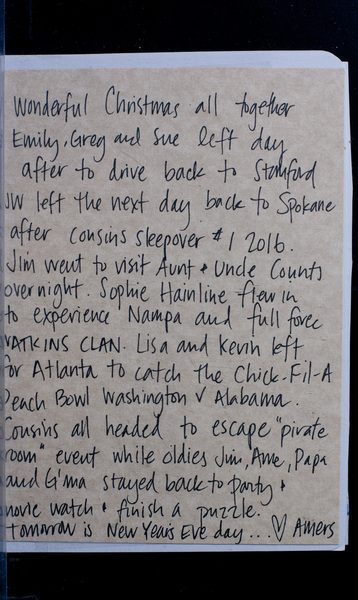 Wonderful Christmas all together
Emily, Greg and Sue left day
after to drive back to Stanford
JW left the next day back to Spokane
after cousins sleepover #1 2016.
Jim went to visit Aunt & Uncle Counts
overnight. Sophie Hainline flew in
to experience Nampa and full force
WATKINS CLAN. Lisa and Kevin left
for Atlanta to catch the Chick-Fil-A
Peach Bowl Washington v Alabama.
Cousins all headed to escape "pirate
room" event while oldies Jim, Ame, Papa
and G'ma stayed back to party &
movie watch & finish a puzzle.
tomorrow is New Years Eve day... ♡ Amers